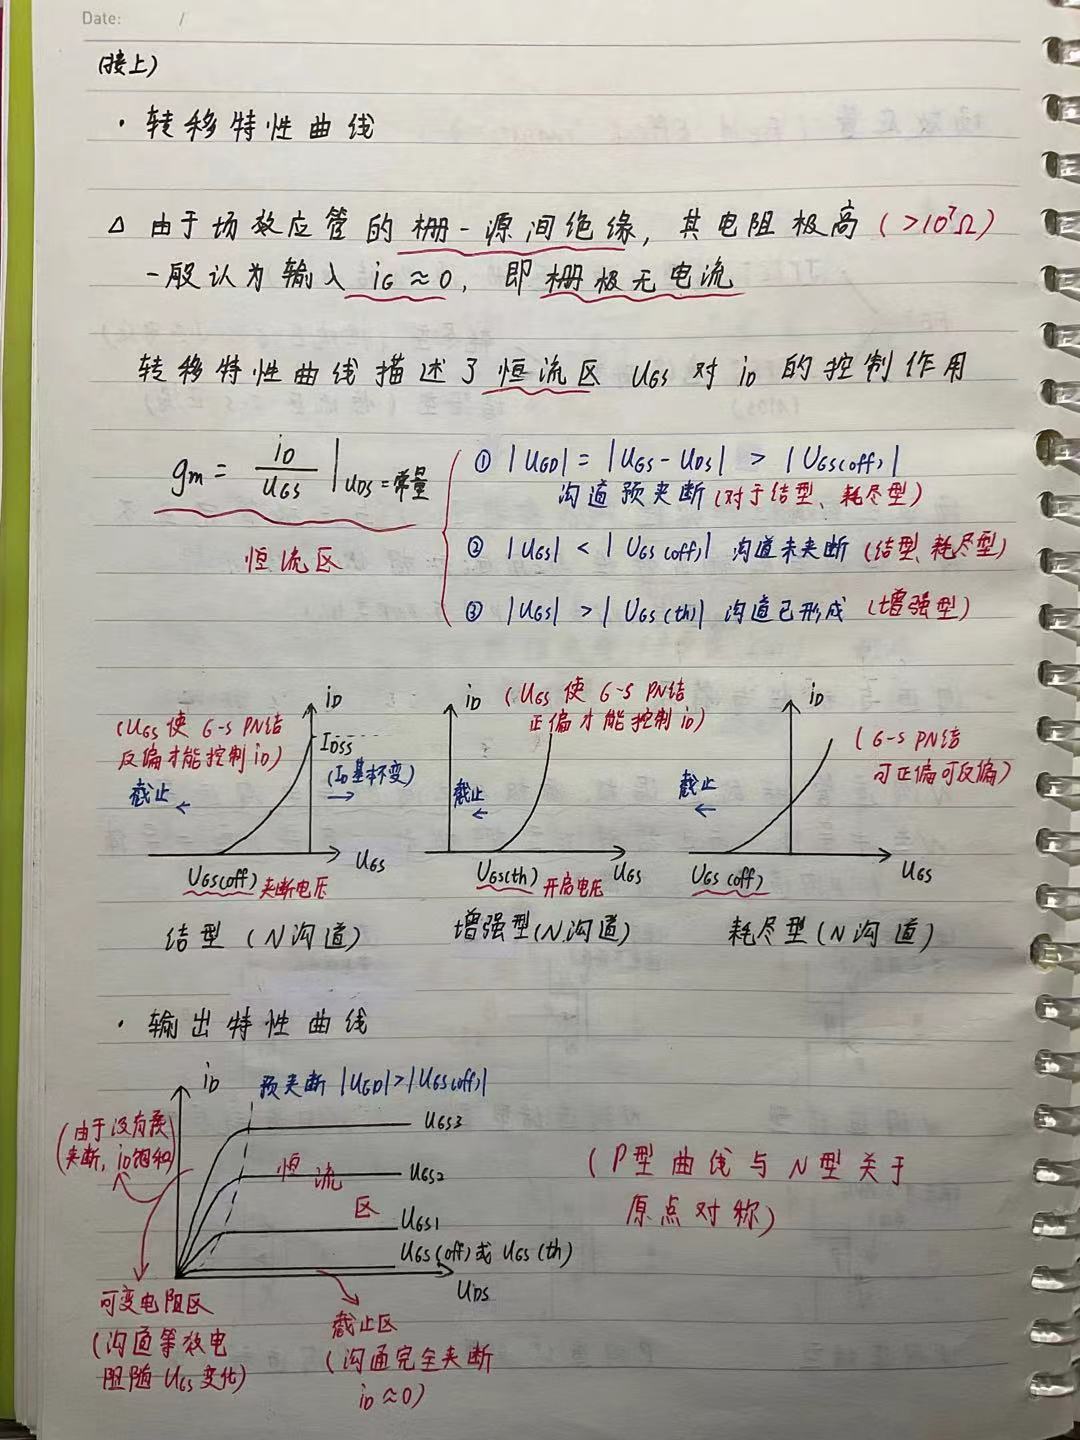 Date: /
(接上)
· 转移特性曲线
△ 由于场效应管的栅-源间绝缘, 其电阻极高(>10⁷Ω)
一般认为输入 iG≈0, 即栅极无电流
转移特性曲线描述了恒流区 UGS 对 iD 的控制作用
gm = iD/UGS | UDS=常量
恒流区
① |UGD| = |UGS-UDS| > |UGS(off)|
沟道预夹断(对于结型、耗尽型)
② |UGS| < |UGS(off)| 沟道未夹断 (结型、耗尽型)
③ |UGS| > |UGS(th)| 沟道已形成 (增强型)
iD
(UGS 使 G-S PN结
反偏才能控制 iD)
IDSS
(ID基本不变)
截止
UGS
UGS(off) 夹断电压
结型 (N沟道)
iD
(UGS 使 G-S PN结
正偏才能控制 iD)
截止
UGS(th) 开启电压
UGS
增强型(N沟道)
iD
(G-S PN结
可正偏可反偏)
截止
UGS(off)
UGS
耗尽型(N沟道)
· 输出特性曲线
iD
预夹断 |UGD|>|UGS(off)|
(由于没有预
夹断, iD饱和)
UGS3
恒流区
UGS2
UGS1
UGS(off) 或 UGS(th)
UDS
(P型曲线与N型关于
原点对称)
可变电阻区
(沟道等效电
阻随 UGS 变化)
截止区
(沟道完全夹断
iD≈0)